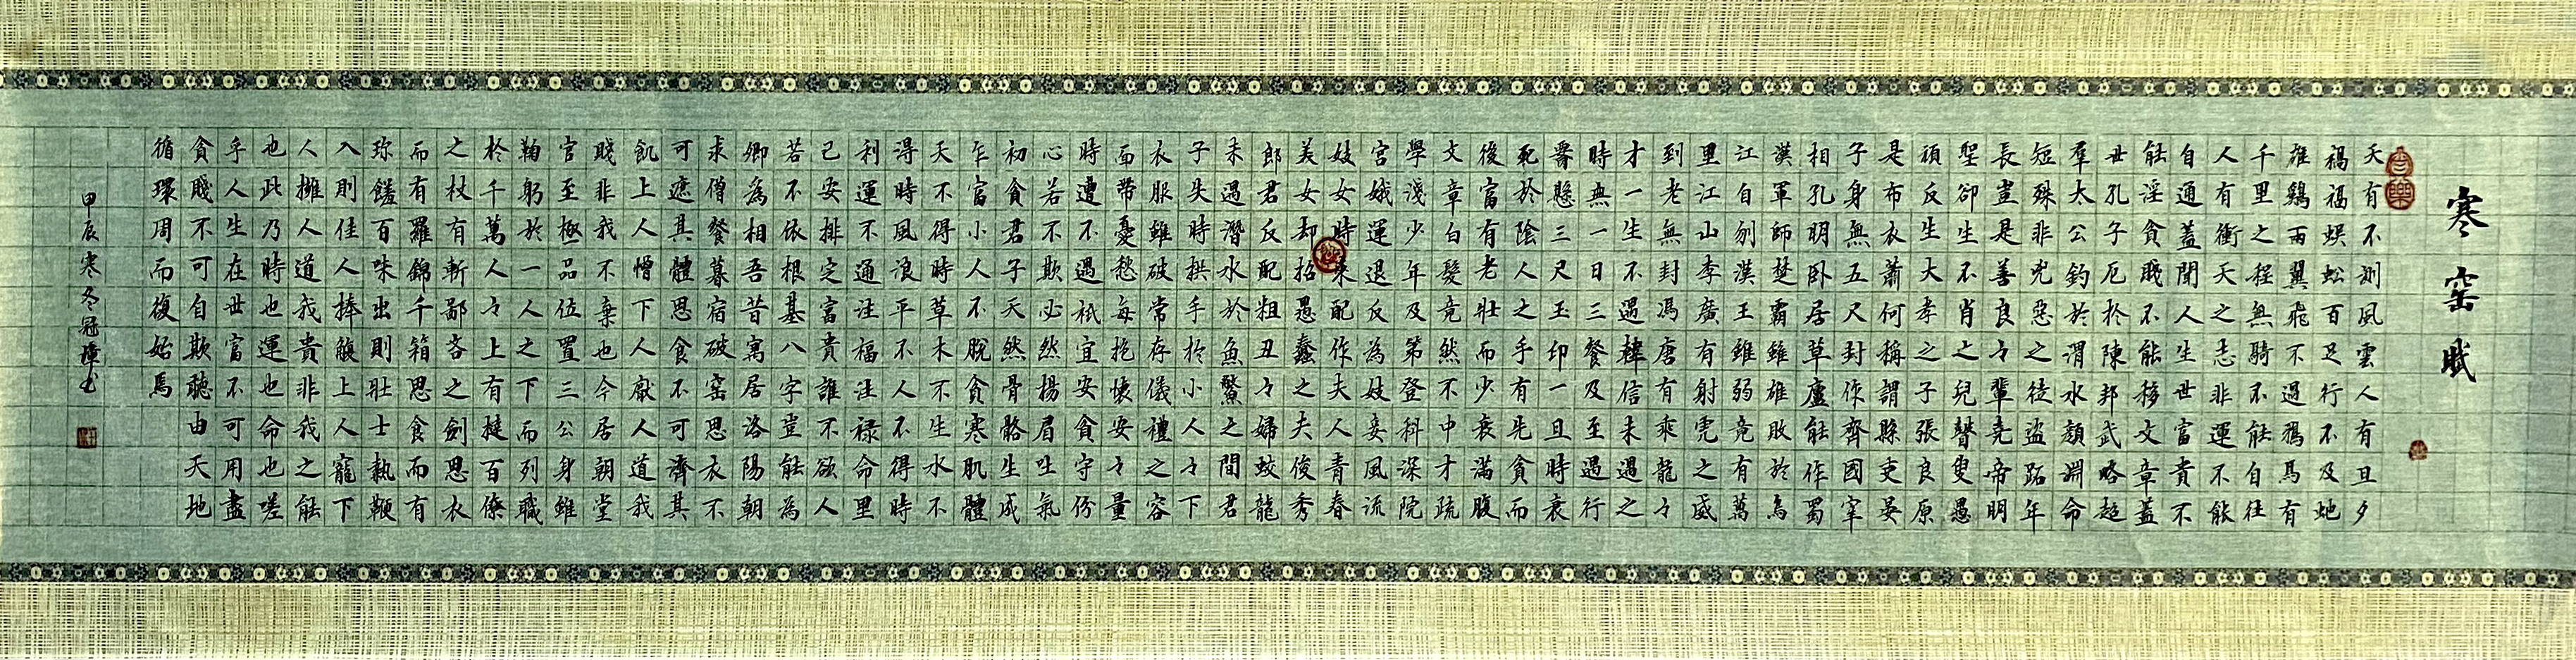 寒窑賦
天有不測風雲人有旦夕
禍福蜈蚣百足行不及蛇
雄鷄兩翼飛不過鴉馬有
千里之程無騎不能自往
人有衝天之志非運不能
自通蓋聞人生世富貴不
能淫貧賤不能移文章蓋
世孔子厄於陳邦武略超
羣太公釣於渭水顏淵命
短殊非兇惡之徒盜跖年
長豈是善良々輩堯帝明
聖卻生不肖之兒瞽叟愚
頑反生大孝之子張良原
是布衣蕭何稱謂縣吏晏
子身無五尺封作齊國宰
相孔明卧居草廬能作蜀
漢軍師楚霸雖雄敗於烏
江自刎漢王雖弱竟有萬
里江山李廣有射虎之威
到老無封馮唐有乘龍々
才一生不遇韓信未遇之
時無一日三餐及至遇行
罾懸三尺玉印一旦時衰
死於陰人之手有先貧而
後富有老壯而少衰滿腹
文章白髮竟然不中才疏
學淺少年及第登科深院
宮娥運退反為妓妾風流
妓女時來配作夫人青春
美女却招愚蠢之夫俊秀
郎君反配粗丑々婦蛟龍
未遇潛水於魚鱉之間君
子失時拱手於小人々下
衣服雖破常存儀禮之容
面帶憂愁每抱懷安々量
時遭不遇祇宜安貧守份
心若不欺必然揚眉吐氣
初貧君子天然骨骼生成
乍富小人不脫貧寒肌體
天不得時草木不生水不
得時風浪平不人不得時
利運不通注福注禄命里
已安排定富貴誰不欲人
若不依根基八字豈能為
卿為相吾昔寓居洛陽朝
求僧餐暮宿破窑思衣不
可遮其體思食不可濟其
飢上人憎下人厭人道我
賤非我不棄也今居朝堂
官至極品位置三公身雖
鞠躬於一人之下而列職
於千萬人々上有撻百僚
之杖有斬鄙吝之劍思衣
而有羅錦千箱思食而有
珍饈百味出則壯士執鞭
入則佳人捧觴上人寵下
人擁人道我貴非我之能
也此乃時也運也命也嗟
乎人生在世富不可用盡
貧賤不可自欺聽由天地
循環周而復始焉
甲辰寒冬冠瑋书